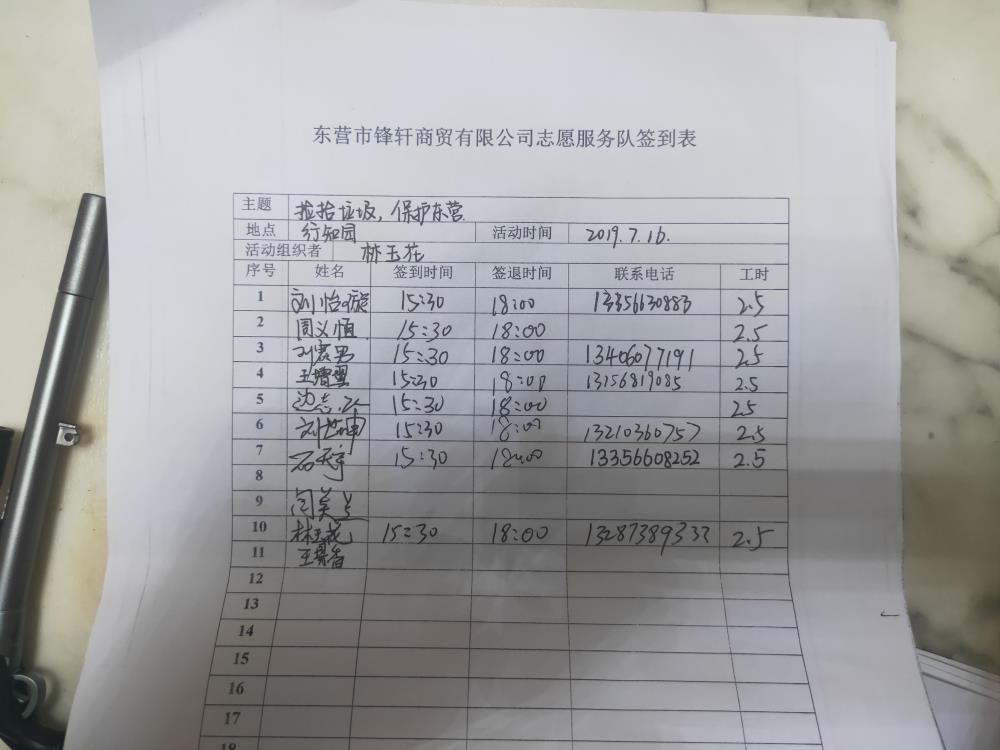 东营市锋轩商贸有限公司志愿服务队签到表
主题 捡拾垃圾，保护东营.
地点 行知园 活动时间 2019.7.16.
活动组织者 林玉花
序号 姓名 签到时间 签退时间 联系电话 工时
1 刘怡璇 15:30 18:00 13356630883 2.5
2 周义恒 15:30 18:00 2.5
3 刘宸男 15:30 18:00 13406077191 2.5
4 15:30 18:00 13156819085 2.5
5 边志 15:30 18:00 2.5
6 刘世坤 15:30 18:00 13210360757 2.5
7 石天宇 15:30 18:00 13356608252 2.5
8
9 闫美兰
10 林玉花 15:30 18:00 13287389333 2.5
11 王翠香
12
13
14
15
16
17
18